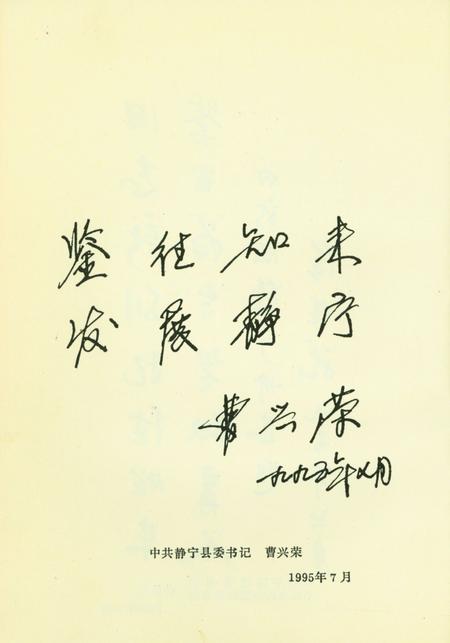 鉴往知未
发展静宁
曹兴荣
一九九五年七月
中共静宁县委书记 曹兴荣
1995年7月